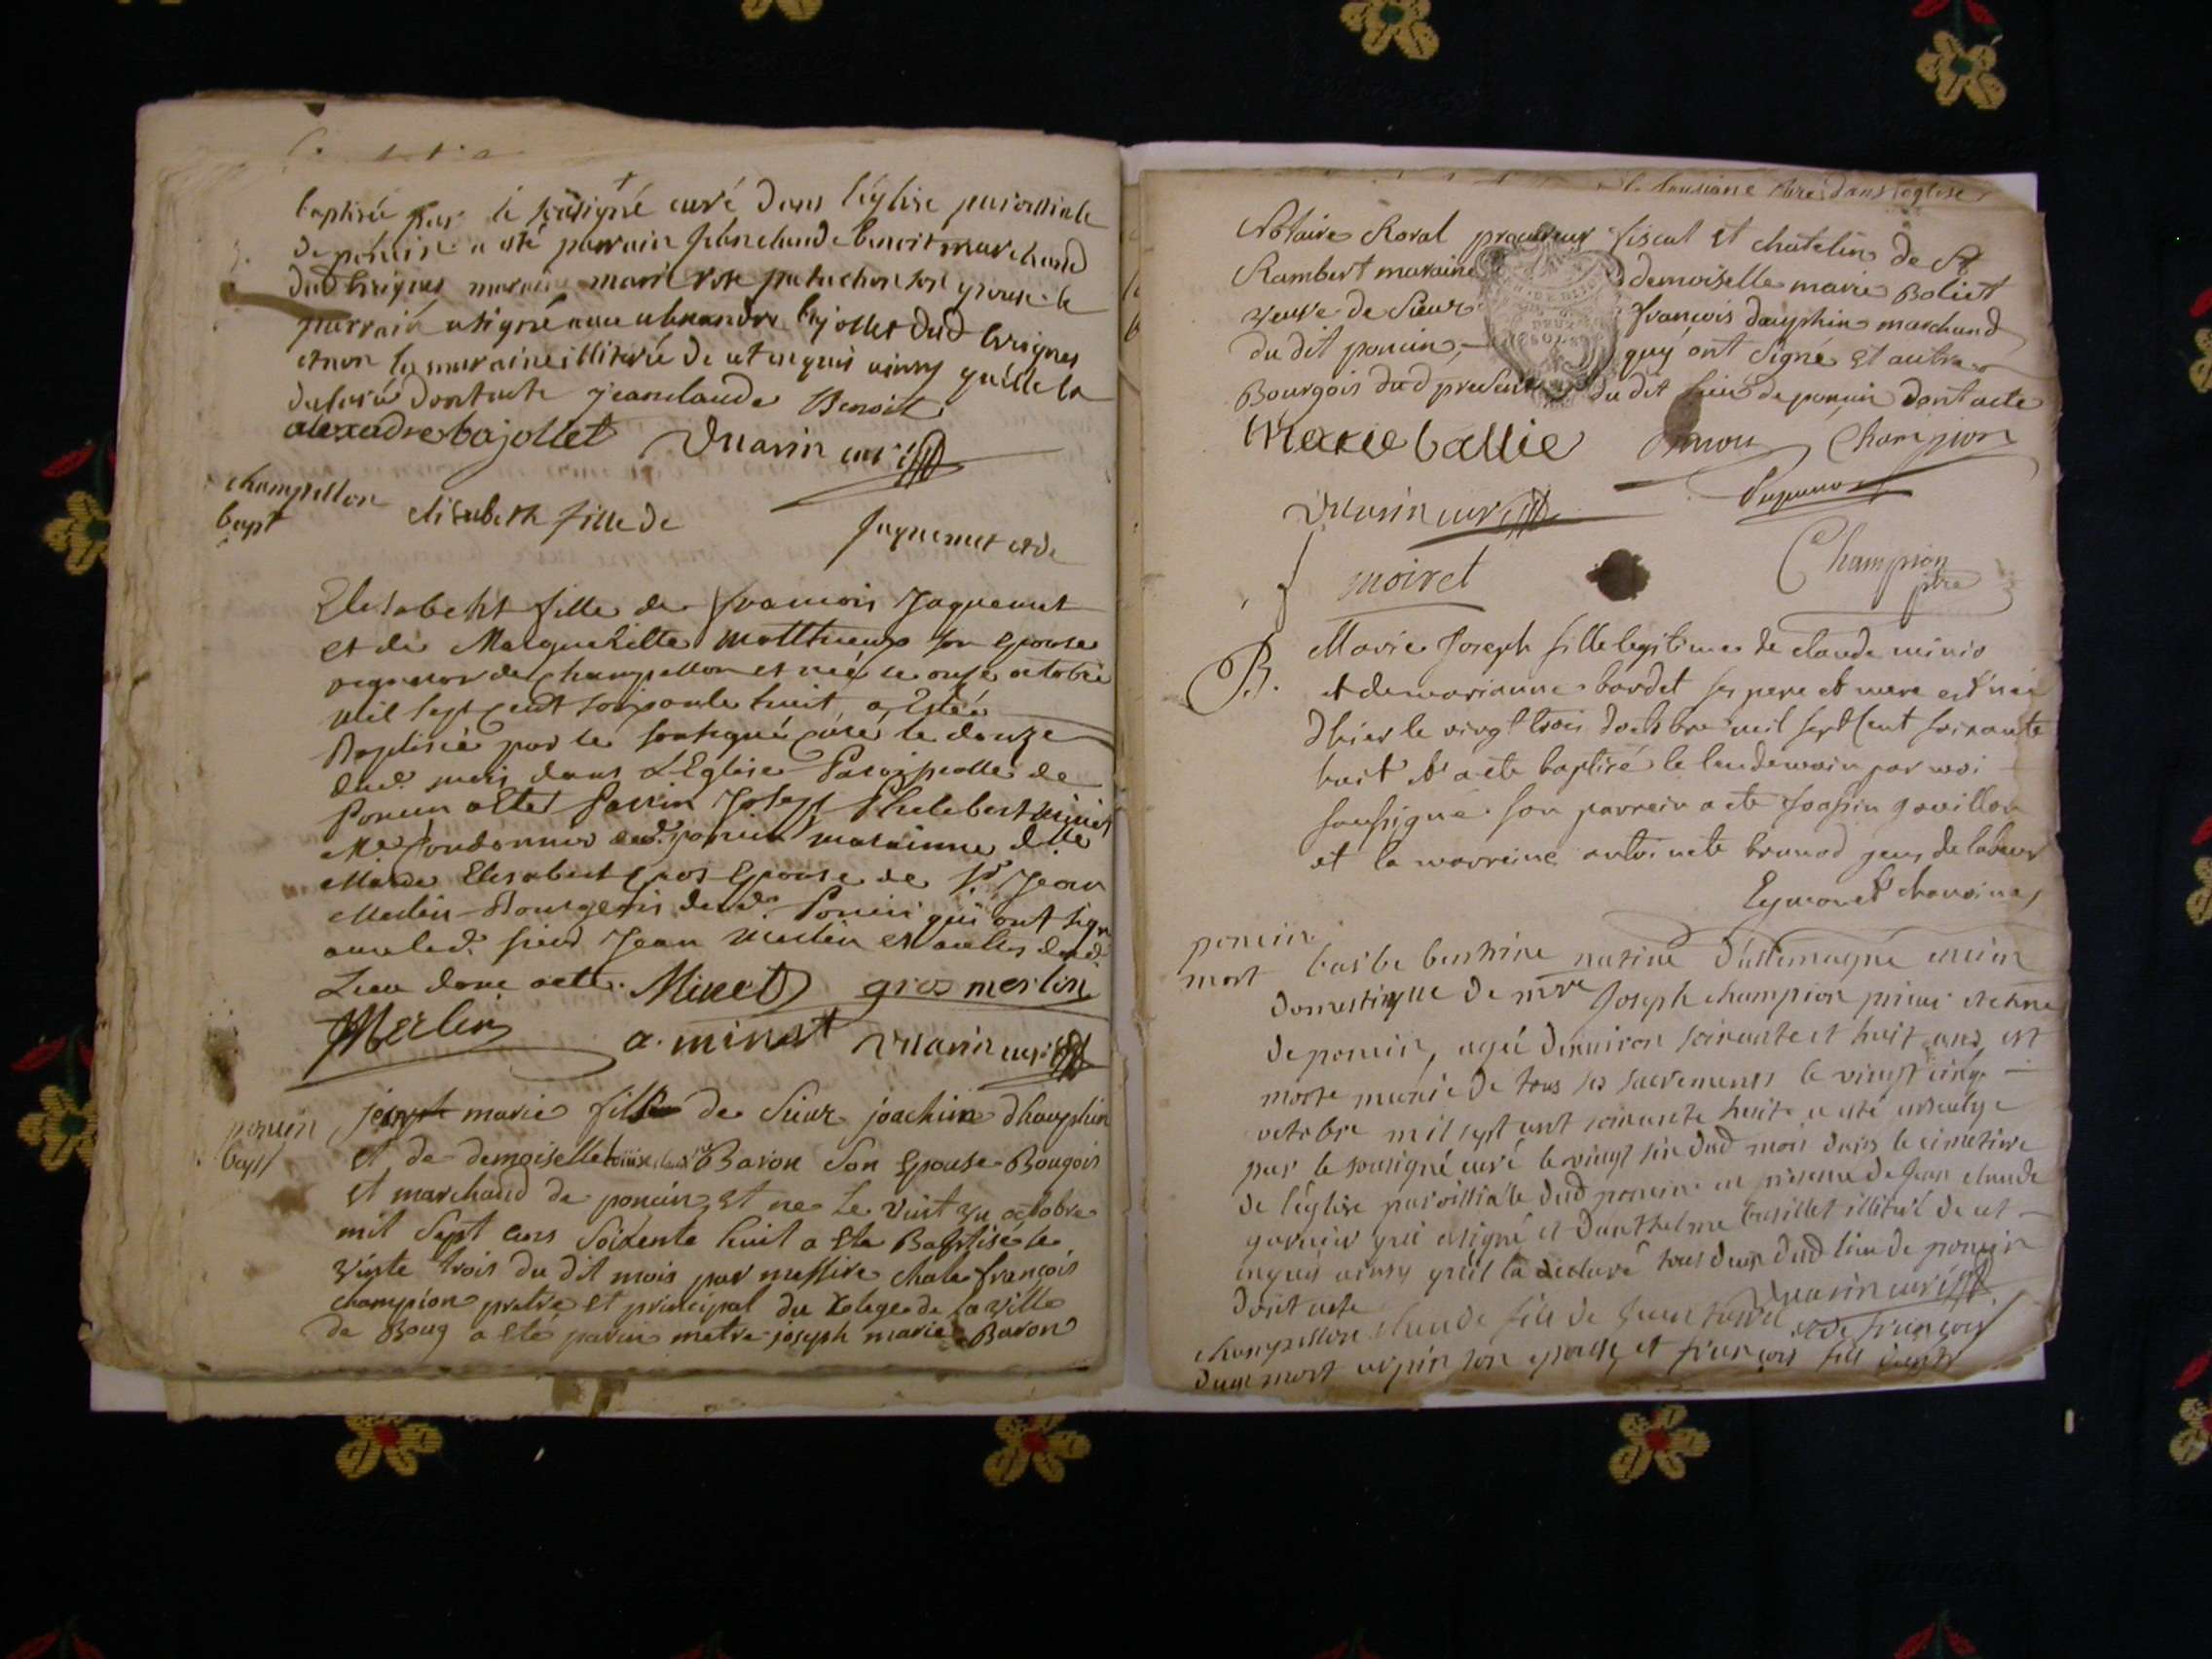 baptisée par le sousigné curé dans l'église paroissiale
de poncin a été parrain jean claude benoit marchand
dud brignes maraine marie rose patuchon son epouse le
parrain a signé avec alexandre bajollet dud brignes
et non la maraine illiterée de ce enquis ainsy quelle la
declaré dont acte jeanclaude Benoit
alexadre bajollet Vuarin curé
champellon
bapt
elisabeth fille de
Juquemet et de
Elesabeht fille de francois Jaquemet
et de Margueritte Matthieux son Epouse
de Champellon et née le onze octobre
mil sept cent soixante huit a Estée
Baptisée par le sousigné curé le douze
dud. mois dans L'Eglise Paroissialle de
Poncin a Eté Parrin Joseph Philebert Minet
Me Cordonnier aud. poncin maraine dlle
Marie Elisabeth Gros Epouse de Sr Jean
Merlin Bourgeois dud. Poncin qui ont signé
avec led. sieur Jean Merlin et autres dud.
Lieu dont acte. Minet gros merlin
JMerlin a. minet Vuarin curé
poncin
bapt
joseph marie fils de Sieur joachim dhauphin
et de demoiselle Baron Son Epouse Bougois
et marchand de poncin, est ne Le vint un octobre
mil Sept cens Soixente huit a Ete Baptisé le
vinte trois du dit mois par messire chale françois
champion pretre et principal du Colege de la ville
de Boug a Eté parin metre joseph marie Baron
dans l'eglise
Notaire Roial procureur fiscal et chatelin de St
Rambert maraine demoiselle marie Boliet
veuve de Sieur françois dauphin marchand
du dit poncin, quy ont Signé et autre
Bourgois du d present du dit lieu de poncin dont acte
Marie ballie Champion
Vuarin curé
moiret
Champion
ptre
B.
Marie Joseph fille legitime de claude minio
et de marianne bardet ses pere et mere est née
d'hier le vingt trois d'octobre mil sept cent soixante
huit et a ete baptisé le lendemain par moi
soussigné. son parrein a ete joassin gavillon
et la marreine antoinete brunod gens de labeur
Eymonet chanoine
poncin
mort
barbe native d'allemagne
domestique de mre Joseph champion
de poncin, agée d'environ soixante et huit ans, est
morte munie de tous ses sacrements le vingt cinq
octobre mil sept cent soixante huit a été ensevelye
par le sousigné curé le vingt six dud mois dans le cimetiere
de l'église paroissialle dud poncin en presence de Jean claude
qui a signé et d'anthelme basillet illiteré de ce
enquis ainsy qu'il l'a déclaré tous deux dud lieu de poncin
dont acte Vuarin curé
champellon claude fils de Jean et de françois
deux mort son epouse, et françois fils